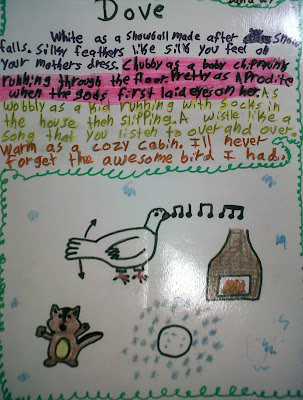 Dove
White as a snowball made after snow
falls. Silky feathers like silk you feel on
your mothers dress. Chubby as a baby chipmunk
running through the floor. Pretty as Aprodite
when the gods first laid eyes on her. As
wobbly as a kid running with socks in
the house then slipping. A wistle like a
song that you listen to over and over.
Warm as a cozy cabin. I'll never
forget the awesome bird I had.